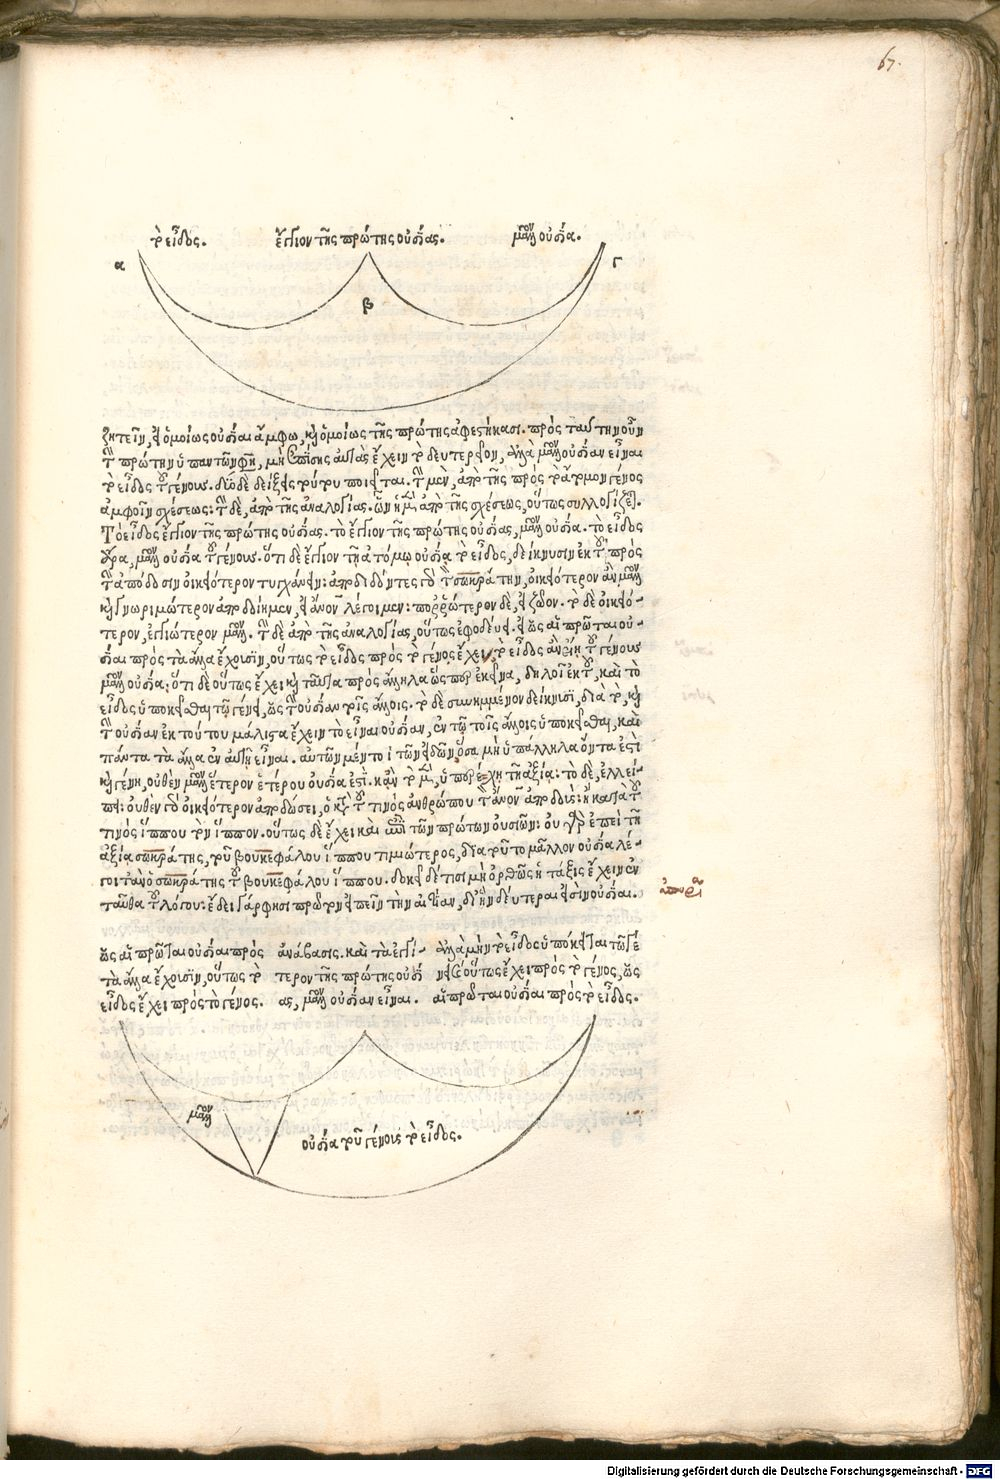 67.
τὸ εἶδος. ἔγγιον τῆς πρώτης οὐσίας. μᾶλλον οὐσία.
α γ
β
ζητεῖν, εἰ ὁμοίως οὐσίαι ἄμφω, καὶ ὁμοίως τῆς πρώτης ἀφεστήκασι. πρὸς ταύτην οὖν
τὴν πρώτην ὑπαντῶν φησὶ, μὴ ἐπίσης αὐτὰς ἔχειν τὸ δεύτερον, ἀλλὰ μᾶλλον οὐσίαν εἶναι
τὸ εἶδος τοῦ γένους. δύο δὲ δείξεις τούτου ποιεῖται. τὴν μὲν, ἀπὸ τῆς πρὸς τὰ ἄτομον γένος
ἀμφοῖν σχέσεως: τὴν δὲ, ἀπὸ τῆς ἀναλογίας. ὧν ἡ μὲν ἀπὸ τῆς σχέσεως, οὕτως συλλογίζεται.
Τὸ εἶδος ἔγγιον τῆς πρώτης οὐσίας. τὸ ἔγγιον τῆς πρώτης οὐσίας, μᾶλλον οὐσία. τὸ εἶδος
ἄρα, μᾶλλον οὐσία τοῦ γένους. ὅτι δὲ ἔγγιον τῇ ἀτόμῳ οὐσίᾳ τὸ εἶδος, δείκνυσιν ἐκ τοῦ πρὸς
τὴν ἀπόδοσιν οἰκειότερον τυγχάνειν: ἀποδιδόντες γὰρ τὸν σωκράτην, οἰκειότερον ἂν μᾶλλον
καὶ γνωριμώτερον ἀποδοίημεν, εἰ ἄνθρωπον λέγοιμεν: πορρώτερον δὲ, εἰ ζῶον. τὸ δὲ οἰκειό-
τερον, ἐγγιώτερον μᾶλλον. τὴν δὲ ἀπὸ τῆς ἀναλογίας, οὕτως ἐφοδεύει. εἰ ὡς αἱ πρῶται οὐ-
σίαι πρὸς τὰ ἄλλα ἔχουσιν, οὕτως τὸ εἶδος πρὸς τὸ γένος ἔχει, τὸ εἶδος ἂν εἴη τοῦ γένους
μᾶλλον οὐσία: ὅτι δὲ οὕτως ἔχει καὶ ταῦτα πρὸς ἄλληλα ὥσπερ ἐκεῖνα, δηλοῖ ἐκ τοῦ, καὶ τὸ
εἶδος ὑποκεῖσθαι τῷ γένει, ὡς τὴν οὐσίαν τοῖς ἄλλοις. τὸ δὲ συνημμένον δείκνυσι, διὰ τὸ, καὶ
τὴν οὐσίαν ἐκ τούτου μάλιστα ἔχειν τὸ εἶναι οὐσίαν, ἐν τῷ τοῖς ἄλλοις ὑποκεῖσθαι, καὶ
πάντα τὰ ἄλλα ἐν αὐτῇ εἶναι. αὐτῶν μέντοι τῶν εἰδῶν, ὅσα μὴ ὑπάλληλα ὄντα ἐστὶ
καὶ γένη, οὐθὲν μᾶλλον ἕτερον ἑτέρου οὐσία ἐστί. κἂν τὸ μὲν, ὑπερέχῃ τῇ ἀξίᾳ: τὸ δὲ, ἐλλεί-
πῃ: οὐθὲν γὰρ οἰκειότερον ἀποδώσει, ὁ κατὰ τοῦ τινὸς ἀνθρώπου τὸν ἄνθρωπον ἀποδιδοὺς: ἢ κατὰ τοῦ
τινὸς ἵππου τὸν ἵππον. οὕτως δὲ ἔχει καὶ ἐπὶ τῶν πρώτων οὐσιῶν: οὐ γὰρ ἐπεὶ τῇ
ἀξίᾳ σωκράτης, τοῦ βουκεφάλου ἵππου τιμιώτερος, διὰ τοῦτο μᾶλλον οὐσία λέ-
γοιτ' ἂν ὁ σωκράτης τοῦ βουκεφάλου ἵππου. δοκεῖ δέ τισι μὴ ὀρθῶς ἡ τάξις ἔχειν ἐν
ταῦθα τοῦ λόγου: ἔδει γάρ φησι πρῶτον εἰπεῖν τὴν αἰτίαν, δι' ἣν δεύτεραι εἰσὶν οὐσίαι.
ὡς αἱ πρῶται οὐσίαι πρὸς ἀνάβασις. καὶ τὰ ἐγγύ- ἀλλὰ μὴν τὸ εἶδος ὑπόκειται τῷ γέ
τὰ ἄλλα ἔχουσιν, οὕτως τὸ τερον τῆς πρώτης οὐσί νει οὕτως ἔχει πρὸς τὸ γένος, ὡς
εἶδος ἔχει πρὸς τὸ γένος. ας, μᾶλλον οὐσίαν εἶναι. αἱ πρῶται οὐσίαι πρὸς τὸ εἶδος.
μᾶλλον
οὐσία τοῦ γένους τὸ εἶδος.
Digitalisierung gefördert durch die Deutsche Forschungsgemeinschaft - DFG